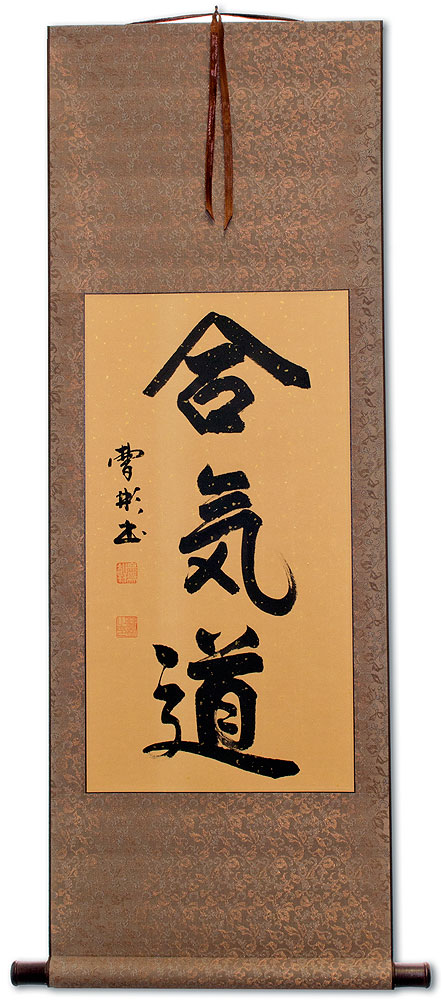 合気道
曹彬书